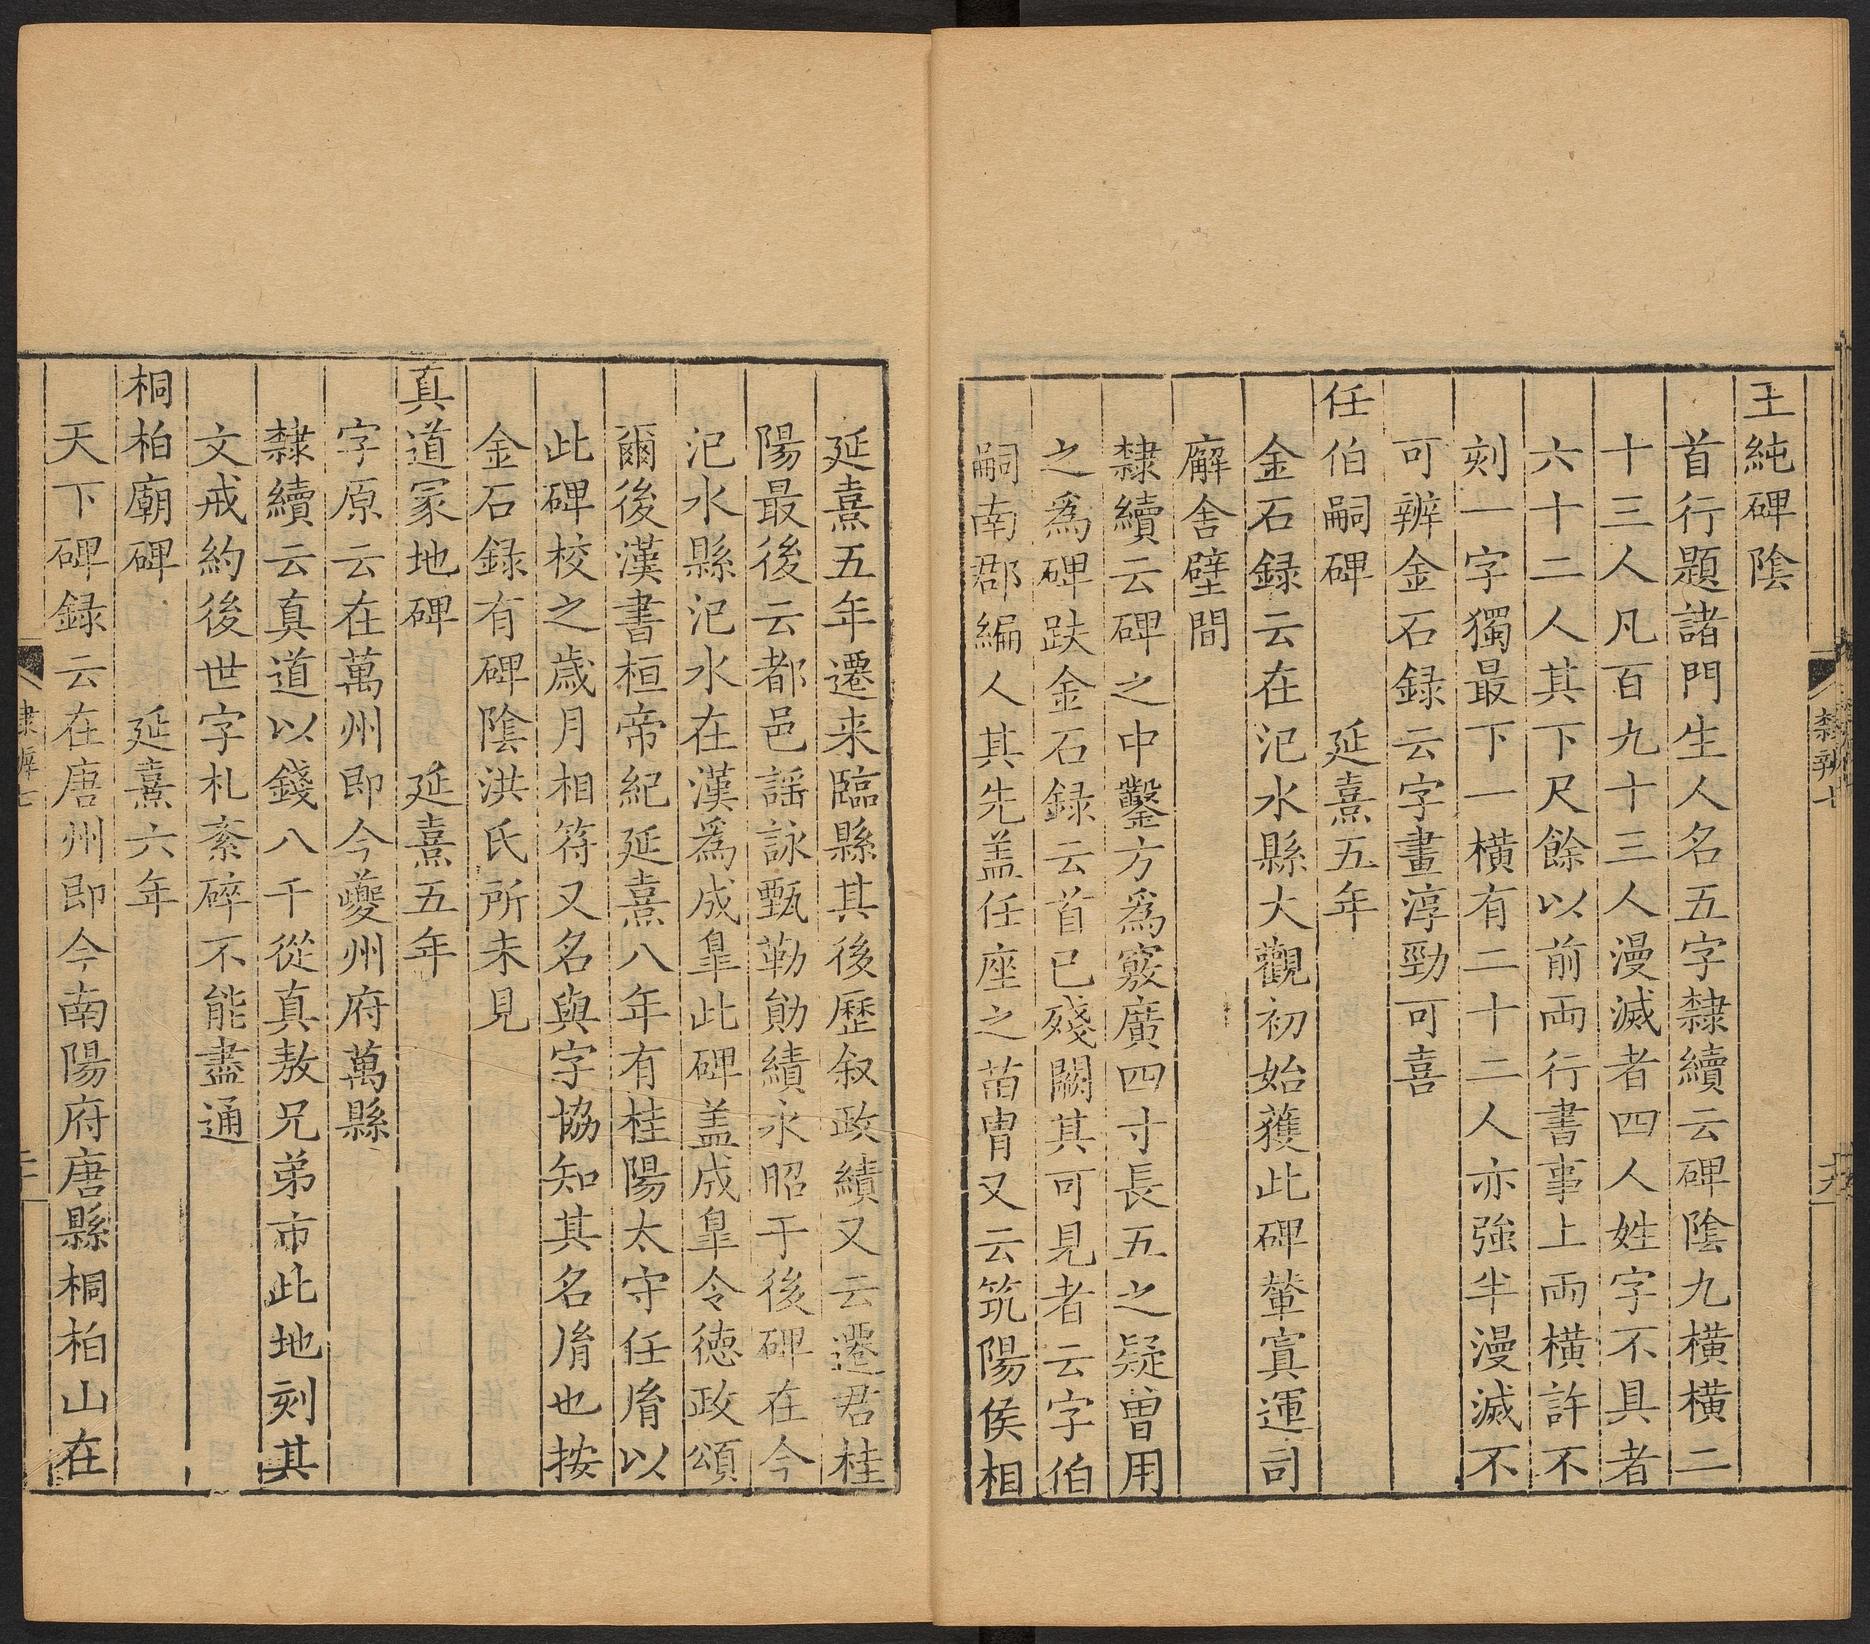 王純碑陰
首行題諸門生人名五字隸續云碑陰九橫橫二
十三人凡百九十三人漫滅者四人姓字不具者
六十二人其下尺餘以前兩行書事上兩橫許不
刻一字獨最下一橫有二十二人亦強半漫滅不
可辨金石録云字畫淳勁可喜
任伯嗣碑 延熹五年
金石録云在汜水縣大觀初始獲此碑輦寘運司
廨舍壁間
隸續云碑之中鑿方爲竅廣四寸長五之疑曽用
之爲碑趺金石録云首已殘闕其可見者云字伯
嗣南郡編人其先盖任座之苗冑又云筑陽侯相
延熹五年遷来臨縣其後歷叙政績又云遷君桂
陽最後云都邑謡詠甄勒勛績永昭于後碑在今
汜水縣汜水在漢爲成臯此碑盖成臯令徳政頌
爾後漢書桓帝紀延熹八年有桂陽太守任㣧以
此碑校之歳月相符又名與字協知其名㣧也按
金石録有碑陰洪氏所未見
真道冡地碑 延熹五年
字原云在萬州即今夔州府萬縣
隸續云真道以錢八千從真敖兄弟市此地刻其
文戒約後世字札紊碎不能盡通
桐柏廟碑 延熹六年
天下碑録云在唐州即今南陽府唐縣桐柏山在